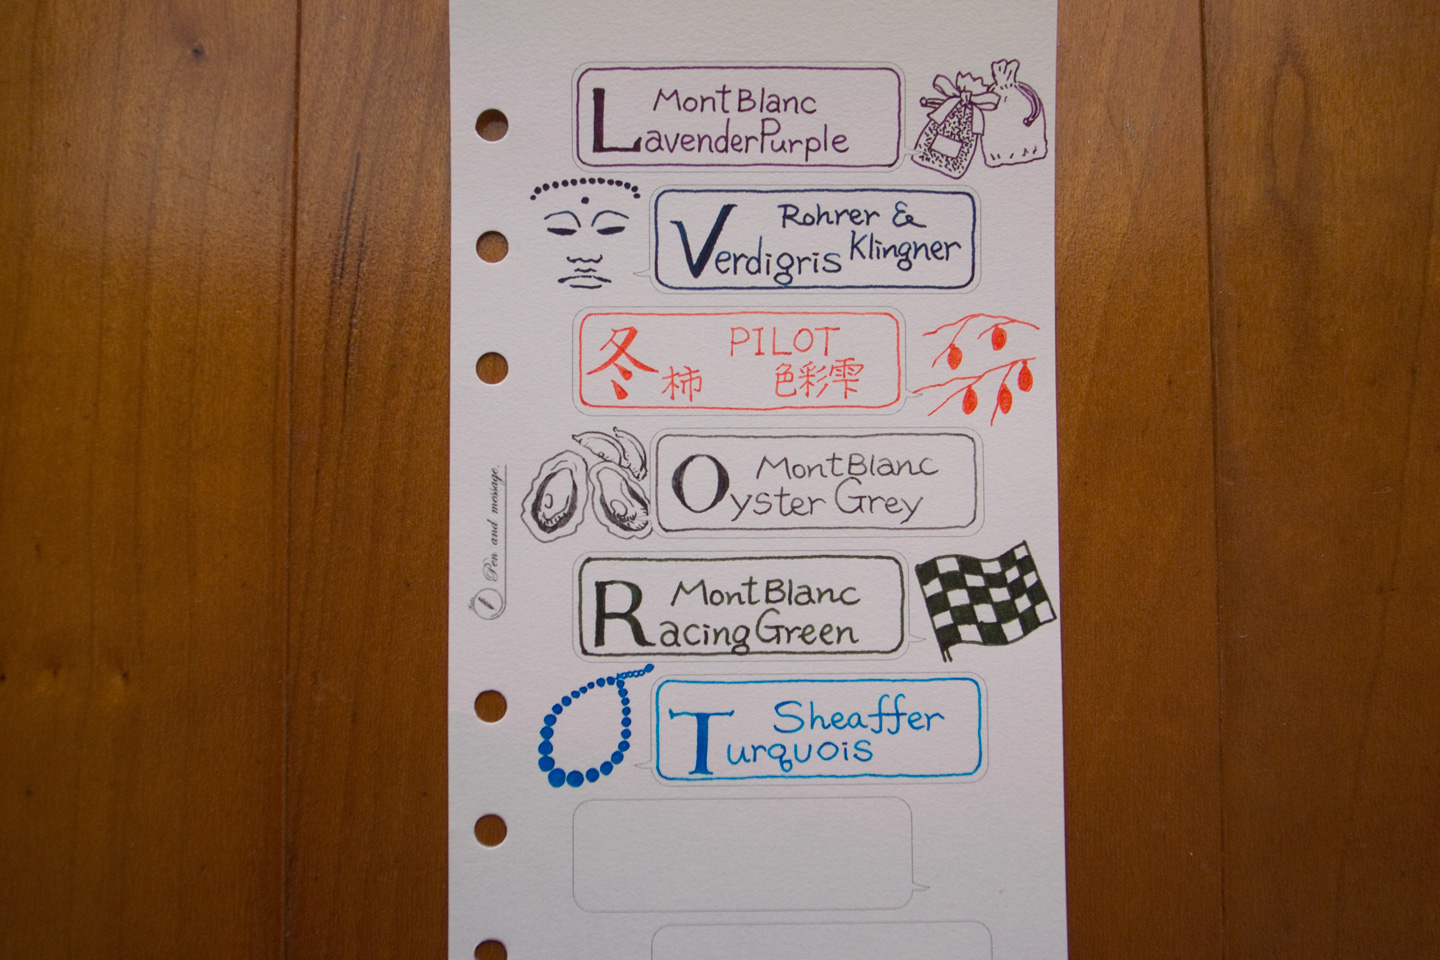 MontBlanc
LavenderPurple
Rohrer &
Klingner
Verdigris
PILOT
冬柿 色彩雫
MontBlanc
Oyster Grey
Pen and message.
MontBlanc
Racing Green
Sheaffer
Turquois